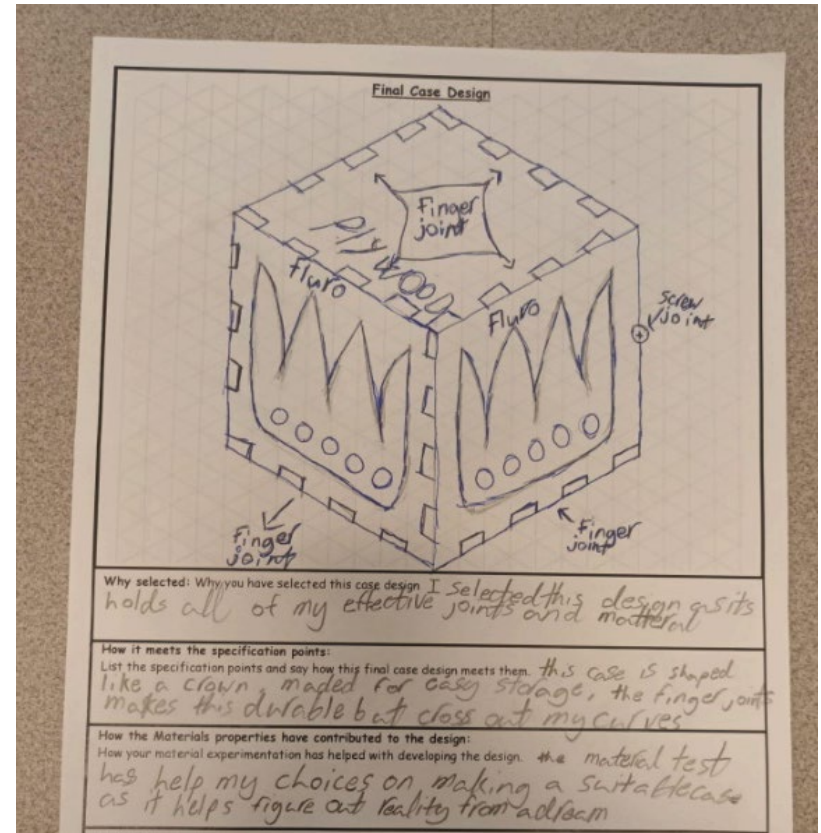 Final Case Design
Finger
joint
Plywood
fluro
Fluro
screw
joint
finger
joint
Finger
joint
Why selected: Why you have selected this case design I selected this design as its
holds all of my effective joints and matteral
How it meets the specification points:
List the specification points and say how this final case design meets them. this case is shaped
like a crown, maded for easy storage, the finger joints
makes this durable but cross out my curves
How the Materials properties have contributed to the design:
How your material experimentation has helped with developing the design. the material test
has help my choices on making a suitable case
as it helps figure out reality from a dream